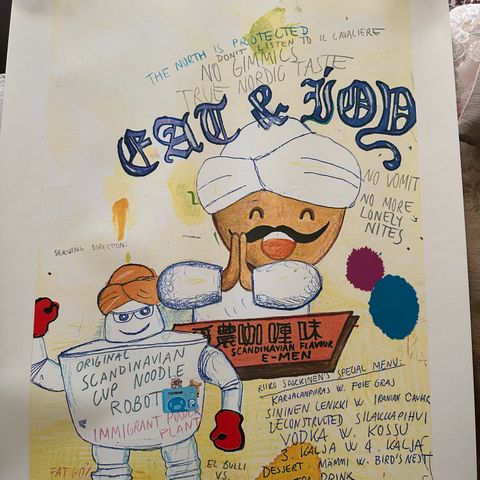 THE NORTH IS PROTECTED
DON'T LISTEN TO IL CAVALIERE
NO GIMMICS
TRUE NORDIC TASTE
EAT & JOY
NO VOMIT
NO MORE
LONELY
NITES
SERVING DIRECTION:
農咖喱味
SCANDINAVIAN FLAVOUR
E-MEN
ORIGINAL
SCANDINAVIAN
CUP NOODLE
ROBOT
IMMIGRANT POWER
PLANT
RIIKO SAKKINEN'S SPECIAL MENU:
KARJALANPIIRAS W. FOIE GRAS
SININEN LENKKI W. IRANIAN CAVIAR
DECONSTRUCTED SILAKKAPIHVI
VODKA W. KOSSU
3. KALJA W 4. KALJA
DESSERT: MÄMMI W. BIRD'S NEST
DRINK
FAT 60%
EL BULLI
VS.